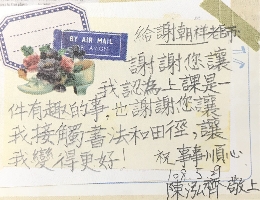 BY AIR MAIL
PAR AVION
給謝朝祥老師:
謝謝您讓
我認為上課是
件有趣的事也謝謝您讓
我接觸書法和田徑,讓
我變得更好!
祝 事事順心
陳泓齊 敬上